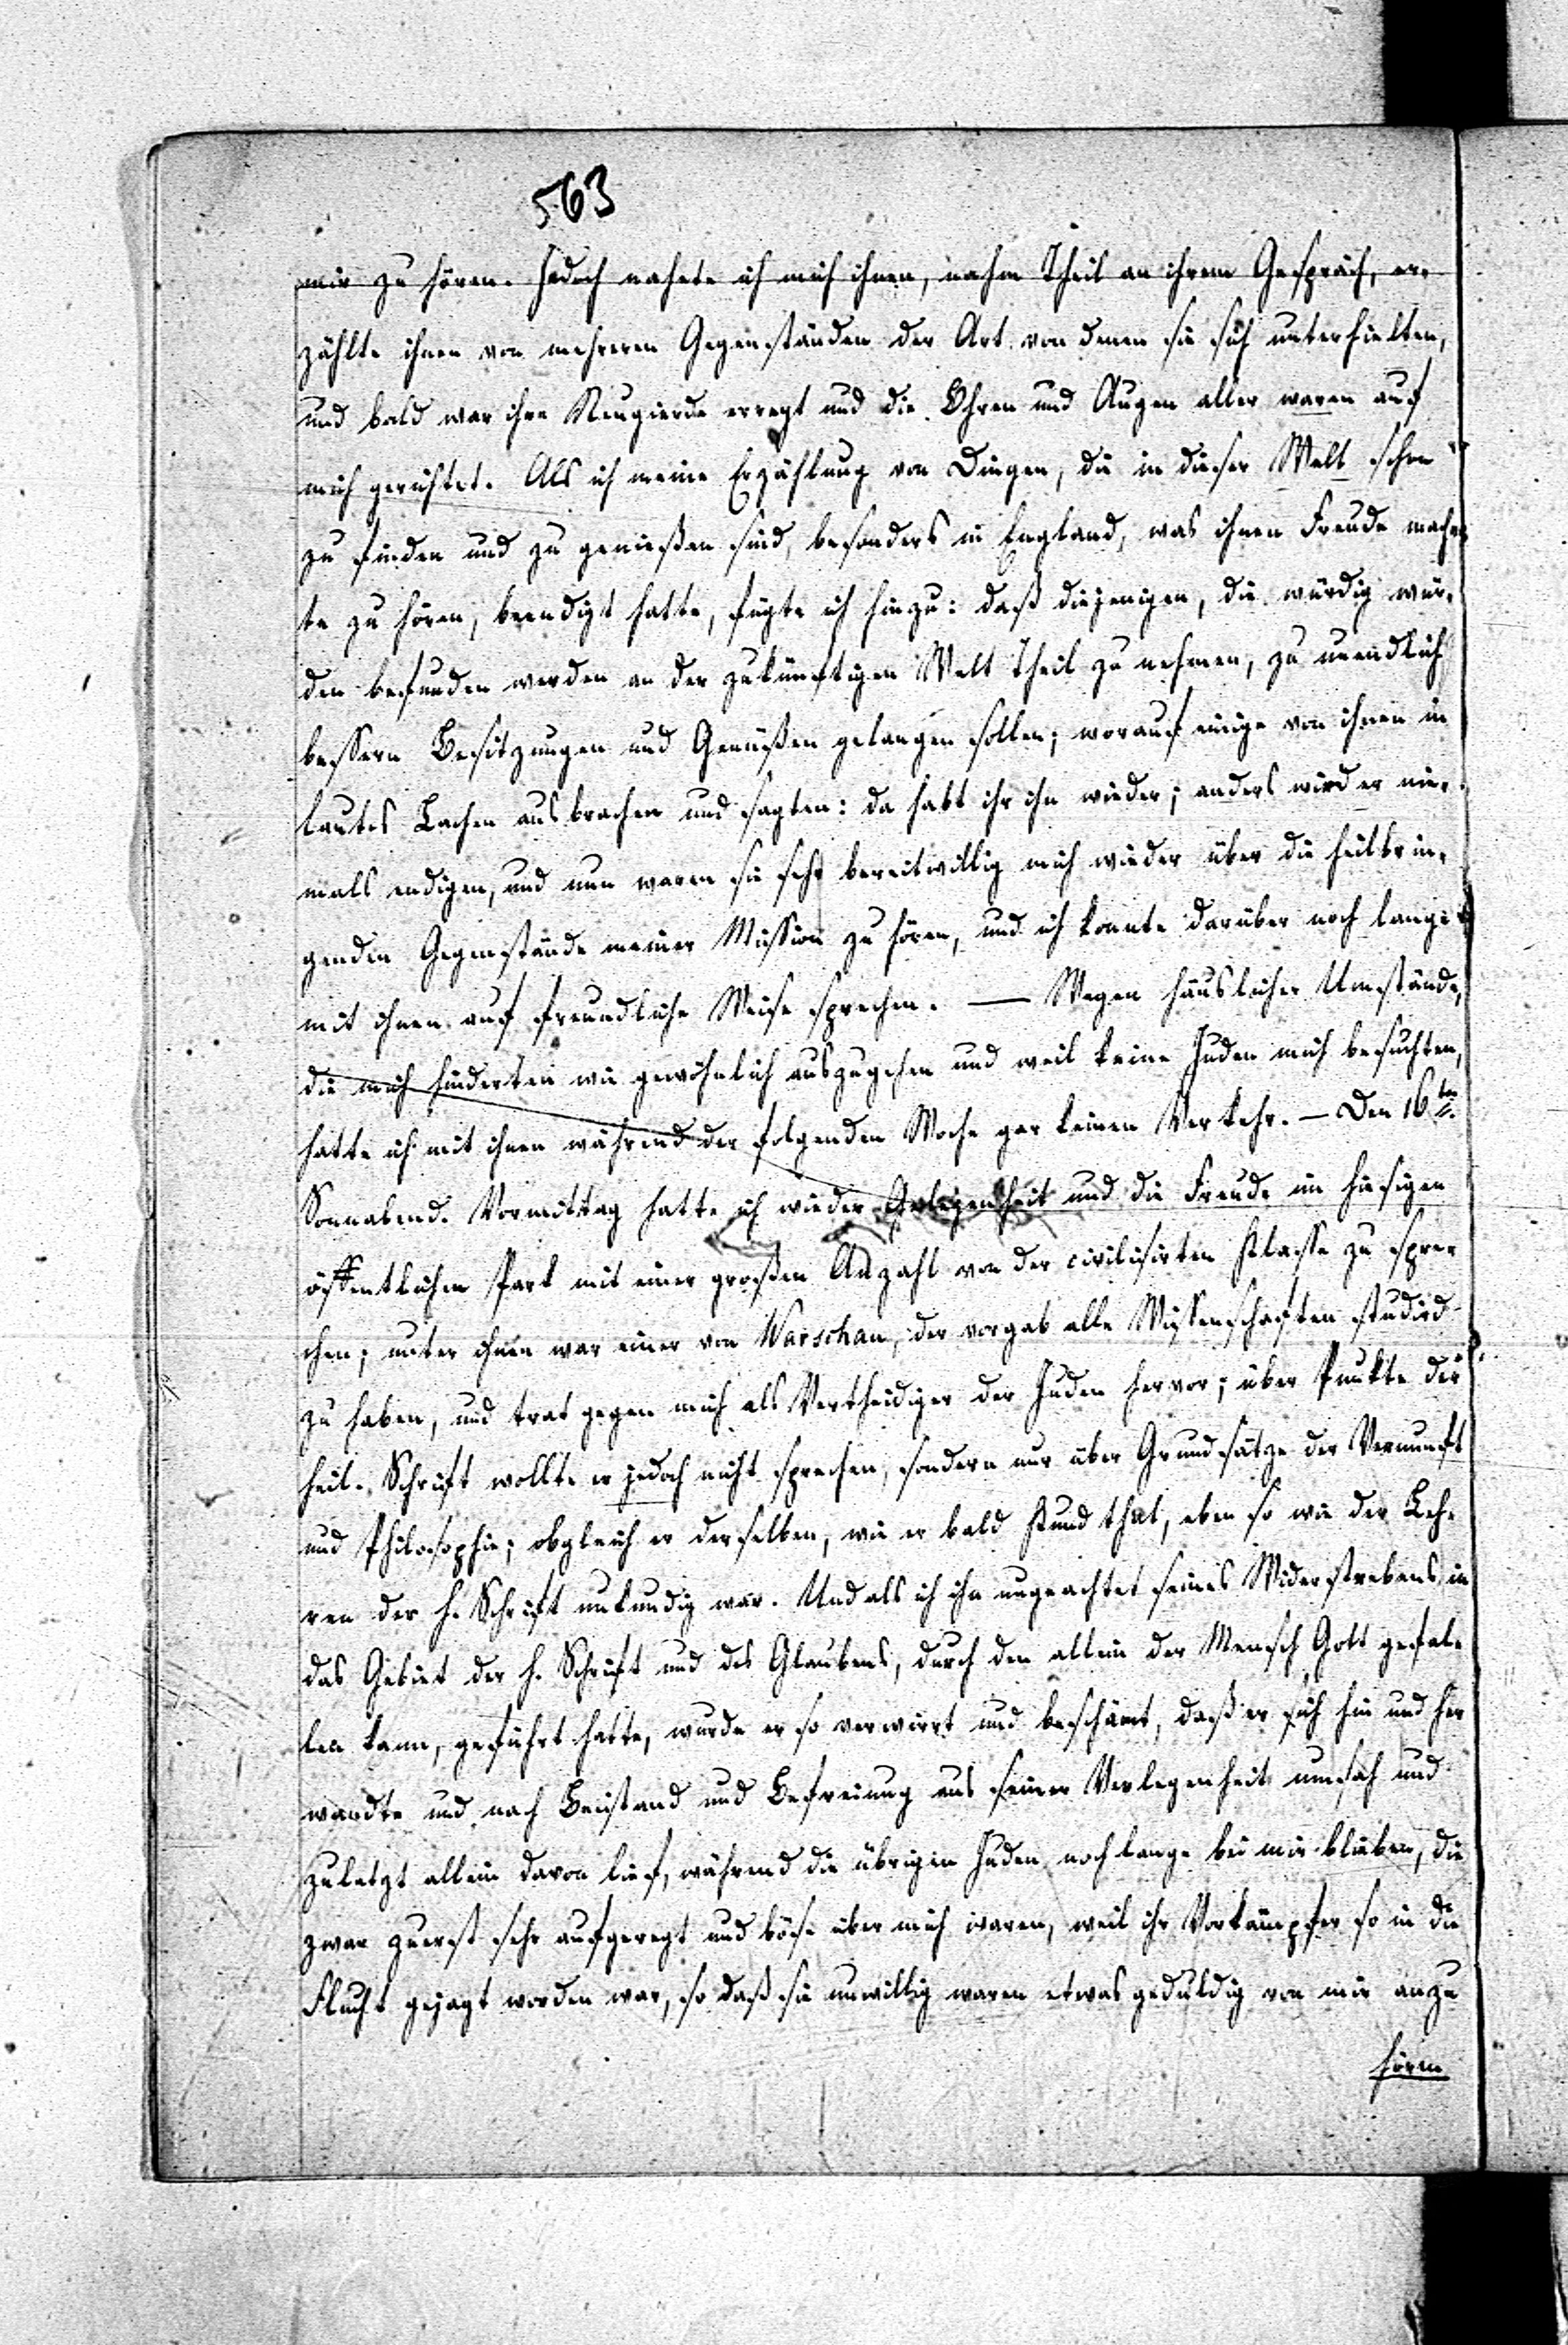 563
mir zu hören. Jedoch nahete ich mich ihnen, nahm Theil an ihrem Gespräch, er-
zählte ihnen von mehreren Gegenständen der Art von denen sie sich unterhielten,
und bald war ihre Neugierde erregt und die Ohren und Augen aller waren auf
mich gerichtet. Als ich meine Erzählung von Dingen, die in dieser Welt schon
zu finden und zu genießen sind, besonders in England, was ihnen Freude mach-
te zu hören, beendigt hatte, fügte ich hinzu: daß diejenigen, die würdig wür-
den befunden werden an der zukünftigen Welt Theil zu nehmen, zu unendlich
bessern Besitzungen und Genüßen gelangen sollen; worauf einige von ihnen in
lautes Lachen ausbrachen und sagten: da habt ihr ihn wieder; anders wird er nie-
mals endigen, und nun waren sie sehr bereitwillig mich wieder über die heilbrin-
genden Gegenstände meiner Mission zu hören, und ich konnte darüber noch lange
mit ihnen auf freundliche Weise sprechen. — Wegen häuslicher Umstände,
die mich hinderten wie gewöhnlich auszugehen und weil keine Juden mich besuchten,
hatte ich mit ihnen während der folgenden Woche gar keinen Verkehr. — Den 16ten
Sonnabend. Vormittag hatte ich wieder Gelegenheit und die Freude im hiesigen
öffentlichen Park mit einer großen Anzahl von der civilisirten Klasse zu spre-
chen; unter ihnen war einer von Warschau, der vorgab alle Wissenschaften studird
zu haben, und trat gegen mich als Vertheidiger der Juden hervor; über Punkte der
heil. Schrift wollte er jedoch nicht sprechen, sondern nur über Grundsätze der Vernunft
und Philosophie; obgleich er derselben, wie er bald kund that, eben so wie der Leh-
ren der h. Schrift unkundig war. Und als ich ihn ungeachtet seines Widerstrebens in
das Gebiet der h. Schrift und des Glaubens, durch den allein der Mensch Gott gefal-
len kann, geführt hatte, wurde er so verwirrt und beschämt, daß er sich hin und her
wandte und nach Beistand und Befreiung aus seiner Verlegenheit umsah und
zuletzt allein davon lief, während die übrigen Juden noch lange bei mir blieben, die
zwar zuerst sehr aufgeregt und böse über mich waren, weil ihr Vorkämpfer so in die
Flucht gejagt worden war, so daß sie unwillig waren etwas geduldig von mir anzu
hören